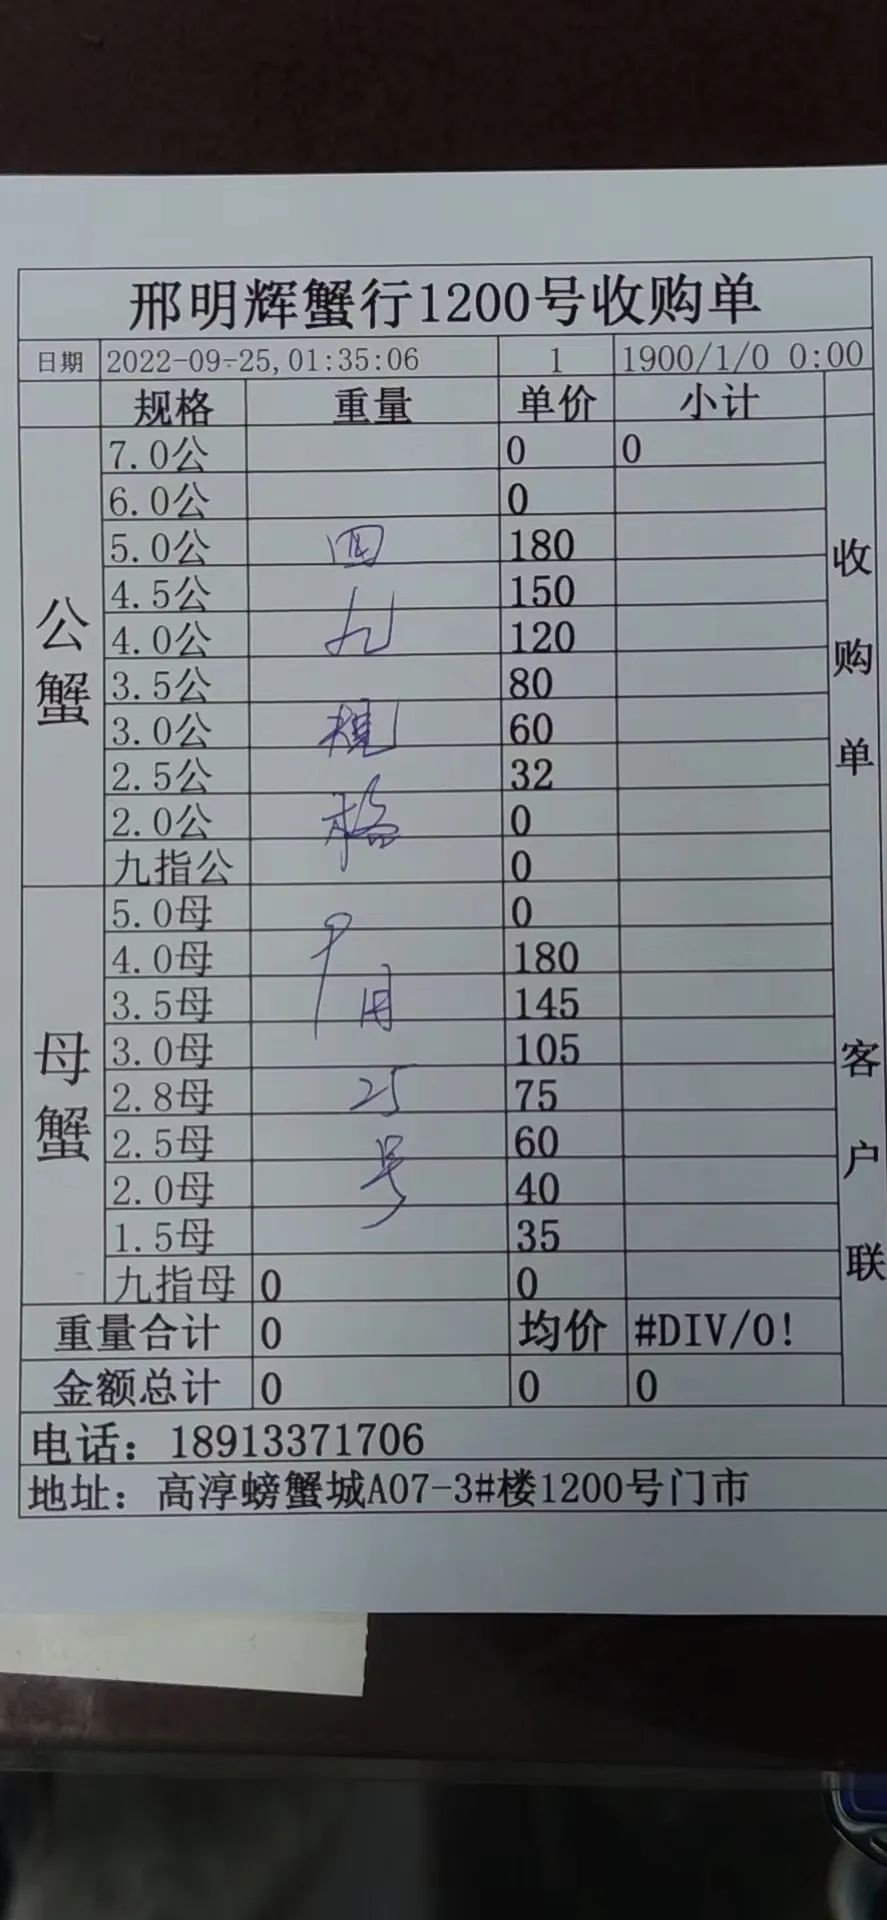 邢明辉蟹行1200号收购单
日期 2022-09-25,01:35:06 1 1900/1/0 0:00
规格 重量 单价 小计
公蟹
7.0公 0 0
6.0公 0
5.0公 四 180
4.5公 150
4.0公 九 120
3.5公 80
3.0公 规 60
2.5公 32
2.0公 格 0
九指公 0
母蟹
5.0母 0
4.0母 9 180
3.5母 月 145
3.0母 105
2.8母 25 75
2.5母 号 60
2.0母 40
1.5母 35
九指母 0 0
重量合计 0 均价 #DIV/0!
金额总计 0 0 0
收购单 客户联
电话: 18913371706
地址: 高淳螃蟹城A07-3#楼1200号门市